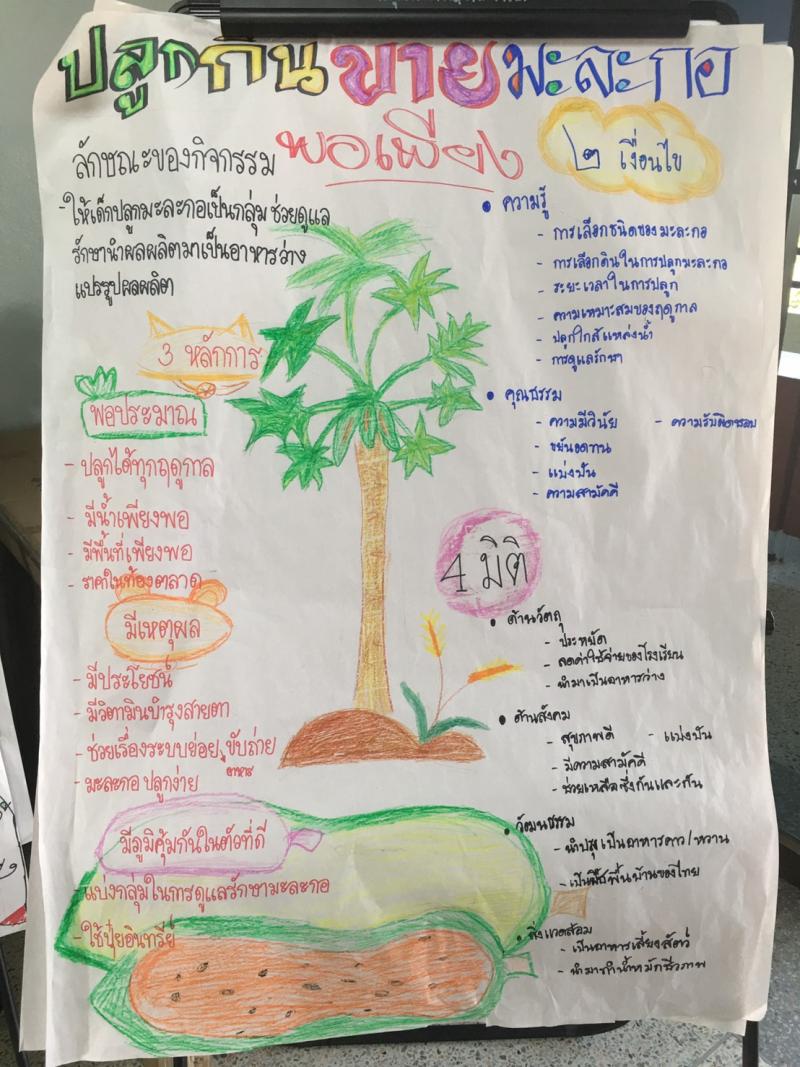 ปลูกกินขายมะละกอ
พอเพียง
ลักษณะของกิจกรรม
- ให้เด็กปลูกมะละกอเป็นกลุ่ม ช่วยดูแล
รักษานำผลผลิตมาเป็นอาหารว่าง
แปรรูปผลผลิต
3 หลักการ
พอประมาณ
- ปลูกได้ทุกฤดูกาล
- มีน้ำเพียงพอ
- มีพื้นที่เพียงพอ
- ราคาในท้องตลาด
มีเหตุผล
- มีประโยชน์
- มีวิตามินบำรุงสายตา
- ช่วยเรื่องระบบย่อยอาหาร ขับถ่าย
- มะละกอ ปลูกง่าย
มีภูมิคุ้มกันในตัวที่ดี
- แบ่งกลุ่มในการดูแลรักษามะละกอ
- ใช้ปุ๋ยอินทรีย์
๒ เงื่อนไข
• ความรู้
- การเลือกชนิดของมะละกอ
- การเลือกดินในการปลูกมะละกอ
- ระยะเวลาในการปลูก
- ความเหมาะสมของฤดูกาล
- ปลูกใกล้แหล่งน้ำ
- การดูแลรักษา
• คุณธรรม
- ความมีวินัย - ความรับผิดชอบ
- ขยันอดทน
- แบ่งปัน
- ความสามัคคี
4 มิติ
• ด้านวัตถุ
- ประหยัด
- ลดค่าใช้จ่ายของโรงเรียน
- นำมาเป็นอาหารว่าง
• ด้านสังคม
- สุขภาพดี - แบ่งปัน
- มีความสามัคคี
- ช่วยเหลือซึ่งกันและกัน
• วัฒนธรรม
- นำปรุงเป็นอาหารคาว/หวาน
- เป็นพืชพื้นบ้านของไทย
• สิ่งแวดล้อม
- เป็นอาหารเลี้ยงสัตว์
- นำมาทำน้ำหมักชีวภาพ